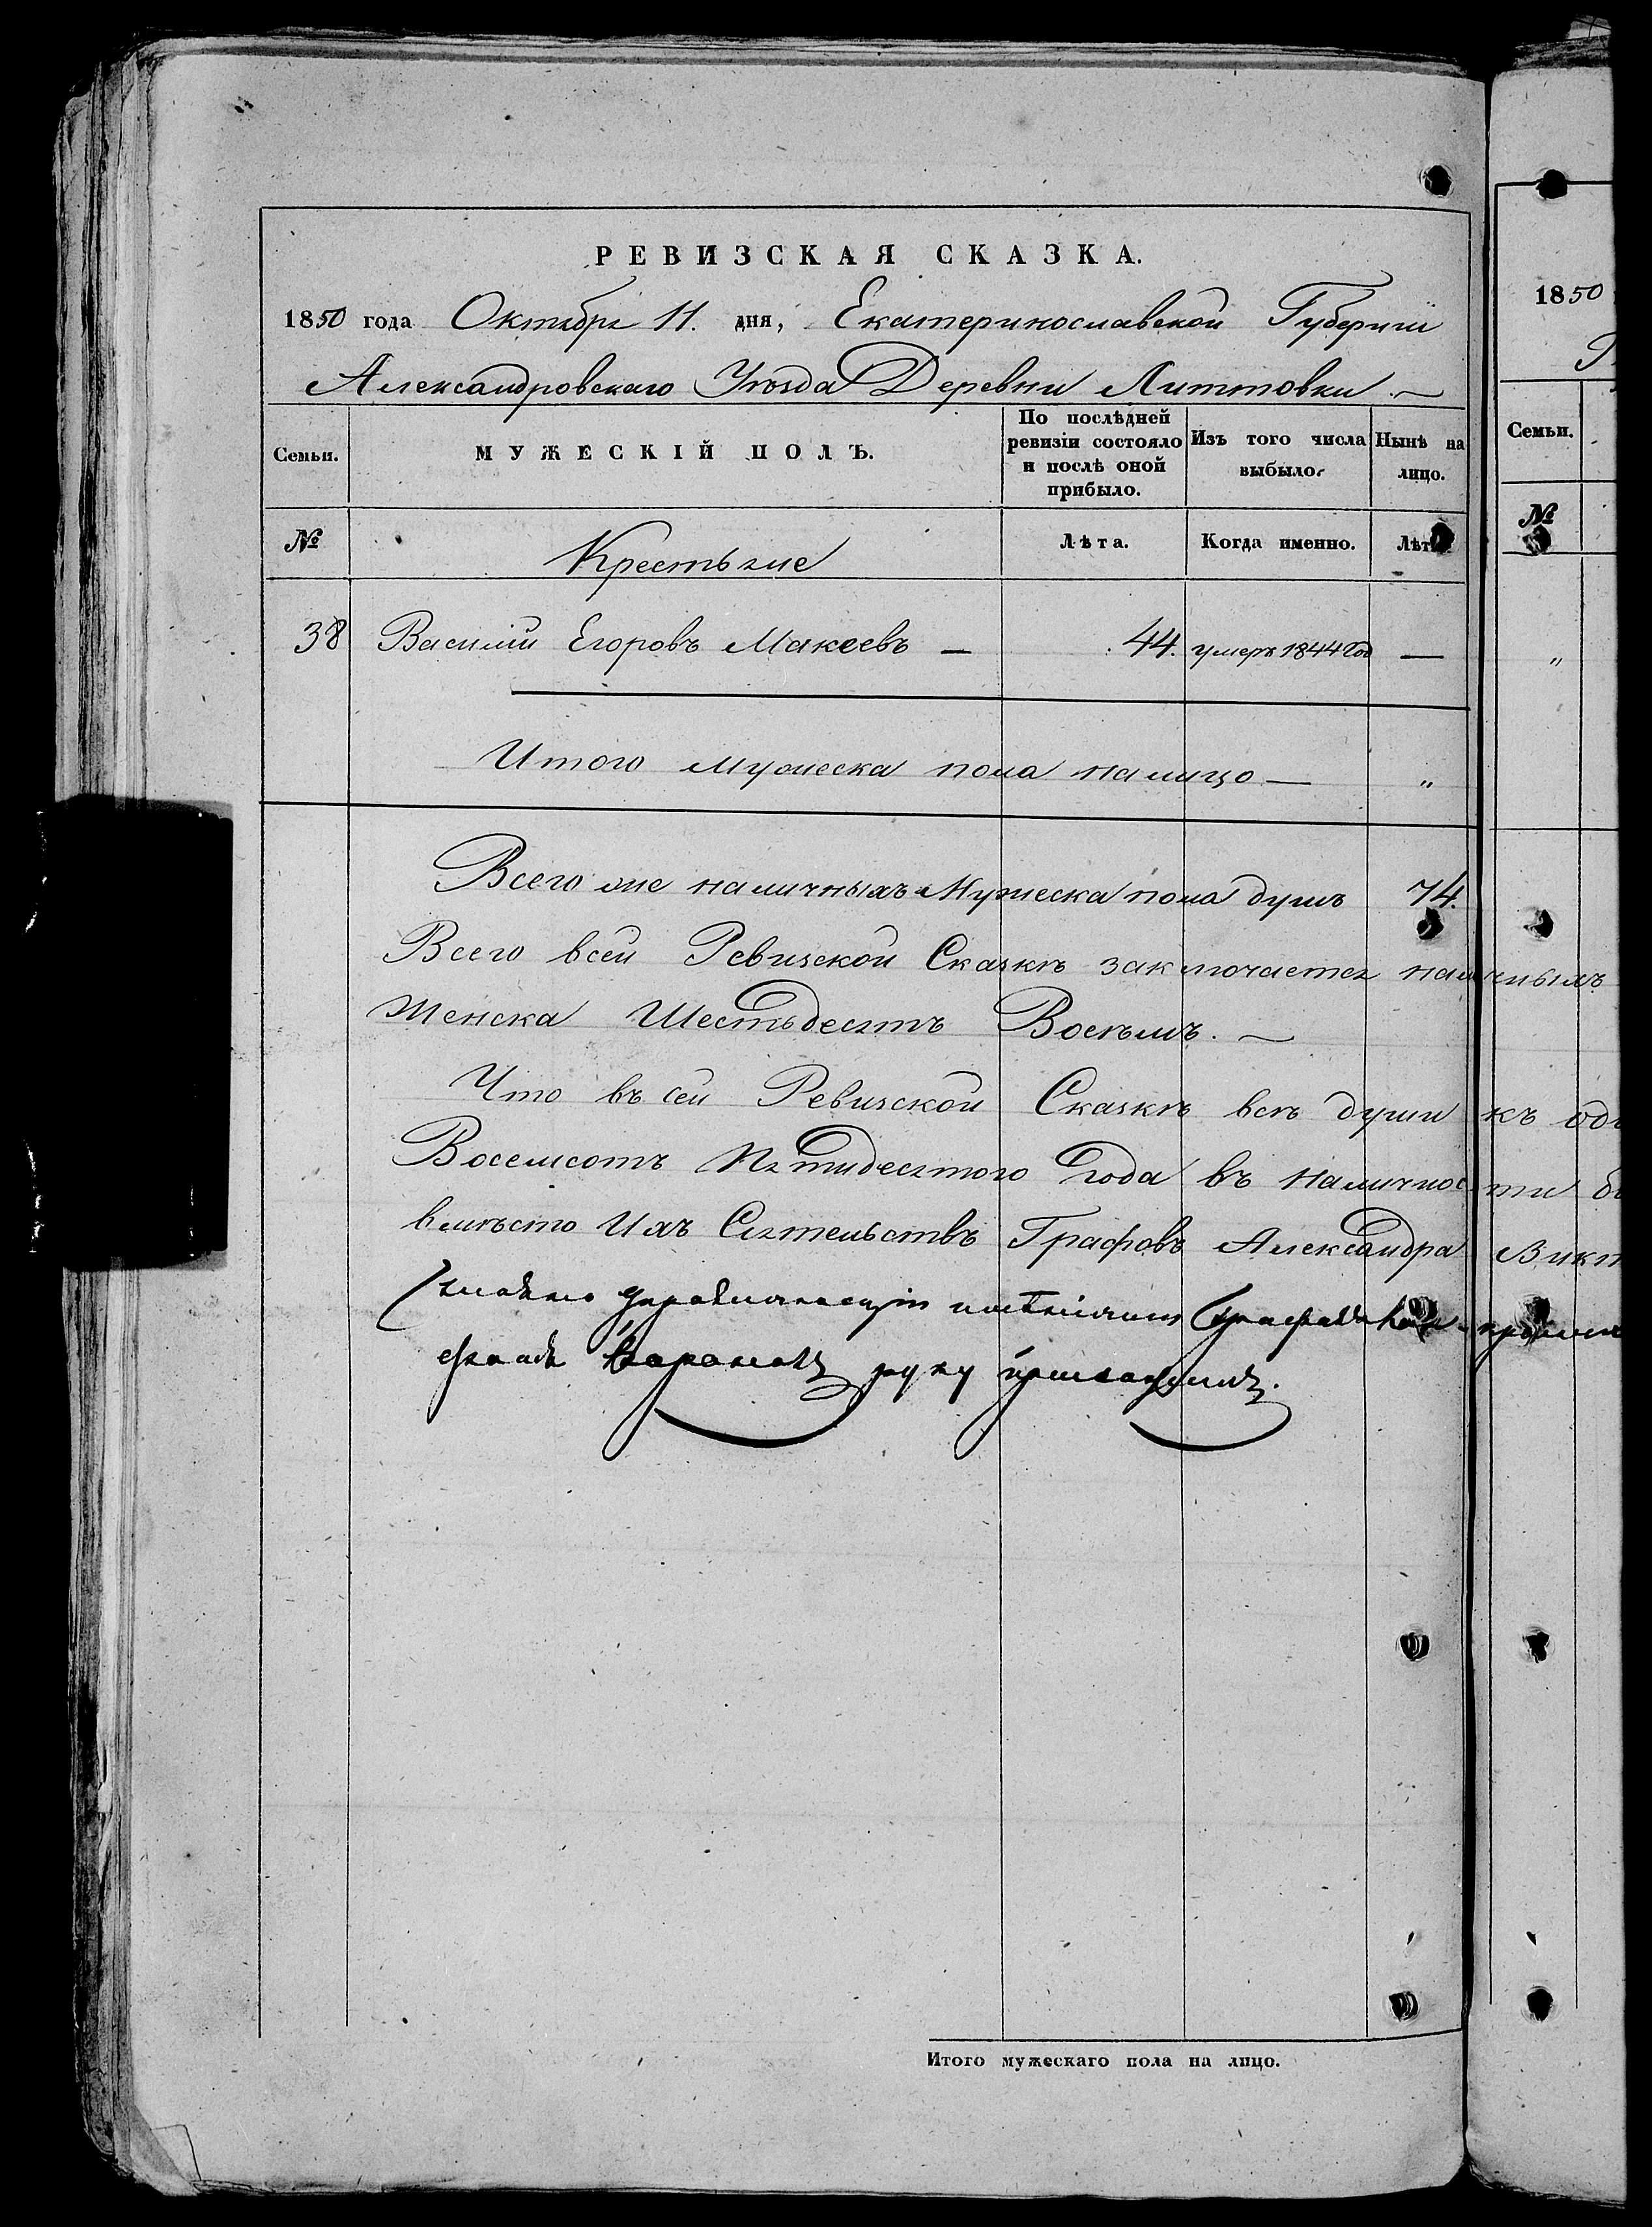 РЕВИЗСКАЯ СКАЗКА.
1850 года Октября 11. дня, Екатеринославской Губерніи
Александровскаго Уѣзда Деревни Литтовки
Семьи.
МУЖЕСКІЙ ПОЛЪ.
По послѣдней ревизіи состояло и послѣ оной прибыло.
Изъ того числа выбыло.
Нынѣ на лицо.
№
Крестьяне
Лѣта.
Когда именно.
Лѣт
38 Василий Егоровъ Макеевъ — 44. умеръ 1844 год —
Итого мужеска пола налицо — "
Всего же наличныхъ Мужеска пола душъ 74.
Всего всей Ревизской Сказкѣ заключается наличныхъ
Женска Шестьдесятъ Восѣмъ.
Что въ сей Ревизской Сказкѣ всѣ души къ
Восемсотъ Пятидесятого Года въ Наличности
вмѣсто Ихъ Сіятельствъ Графовъ Александра
руку приложилъ.
Итого мужескаго пола на лицо.
1850
Семьи.
№
"